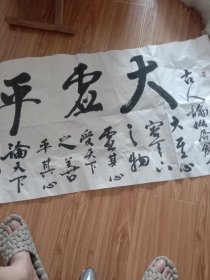 大虚平
古人論
大其心
容天下
之物
虚其心
受天下
之善
平其心
論天下